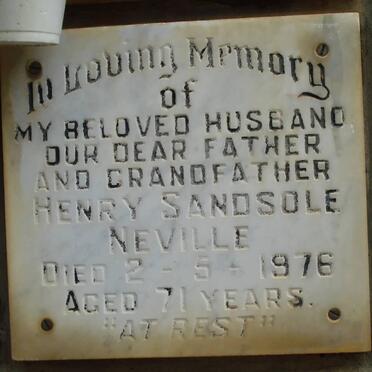 In Loving Memory
of
MY BELOVED HUSBAND
OUR DEAR FATHER
AND GRANDFATHER
HENRY SANDSOLE
NEVILLE
DIED 2 - 5 - 1976
AGED 71 YEARS.
"AT REST"